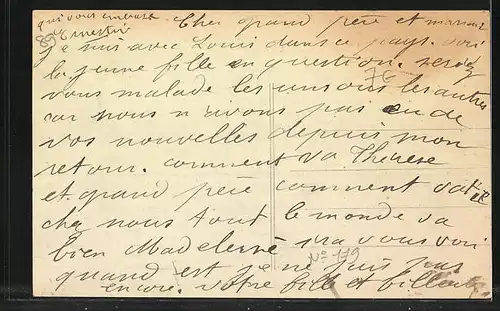 qui vous embrasse
Ernestine
Cher grand père et maman
je suis avec Louis dans ce pays. voici
la jeune fille en question. seriez
76
vous malade les uns ou les autres
car nous n avons pas eu de
vos nouvelles depuis mon
retour. comment va Thérèse
et grand père comment va til
chez nous tout le monde va
bien Madeleine ira vous voir
No 179
quand est je ne sais pas
encore. votre fille et filleule